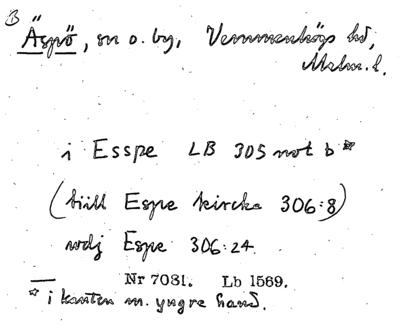 B
Äspö, sn o. by, Vemmenhögs hd,
Malm. l.
i Esspe LB 305 not b*
(tiill Espe kircke 306:8)
udj Espe 306:24.
Nr 7081. Lb 1569.
* i kanten m. yngre hand.